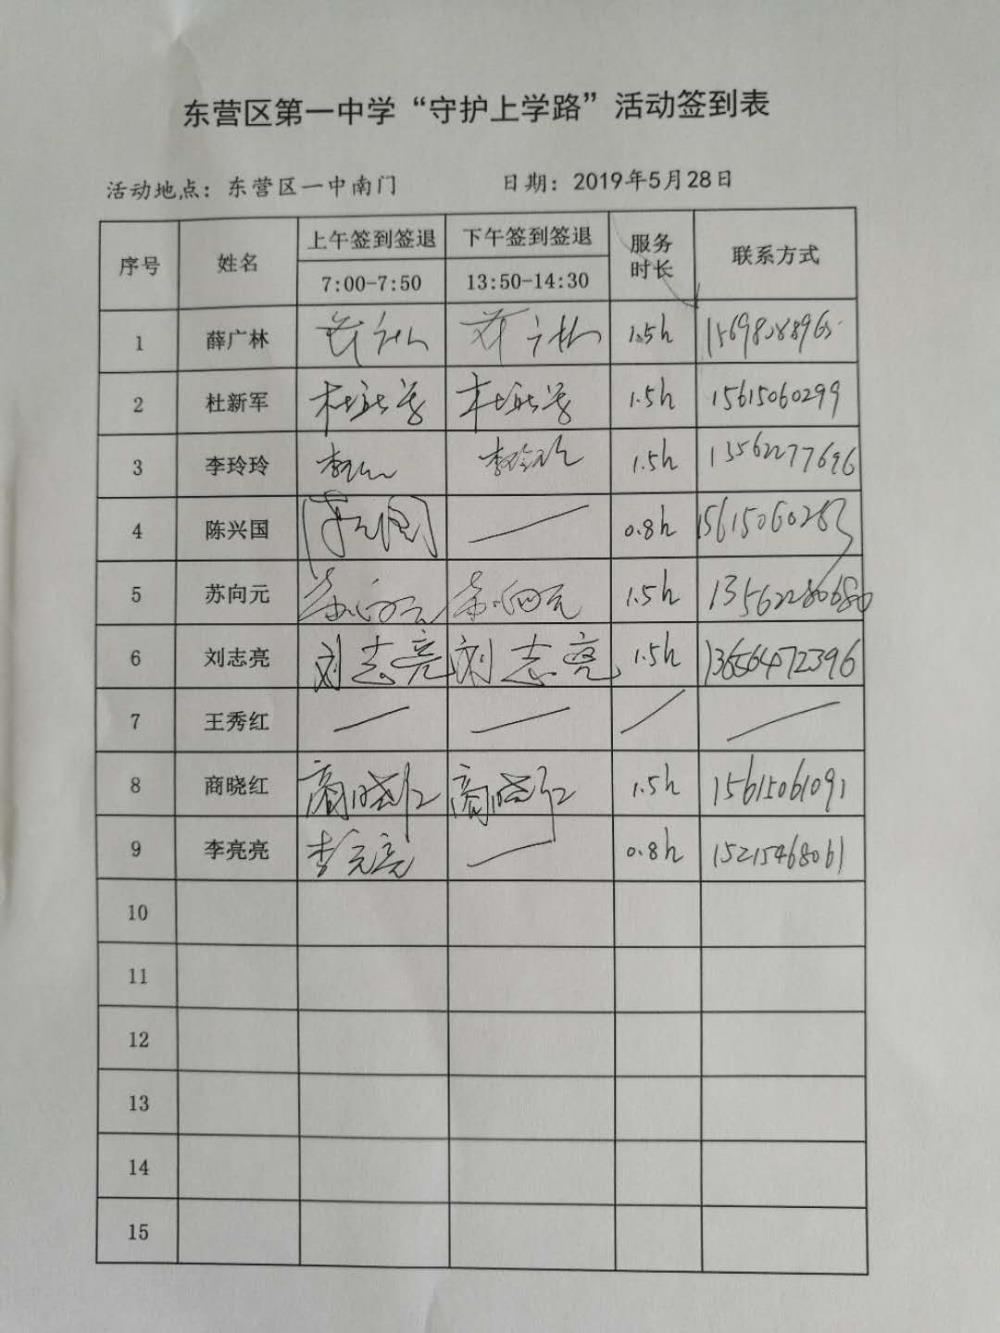 东营区第一中学“守护上学路”活动签到表
活动地点：东营区一中南门 日期：2019年5月28日
序号 姓名 上午签到签退 下午签到签退 服务时长 联系方式
7:00-7:50 13:50-14:30
1 薛广林 1.5h
2 杜新军 杜新军 杜新军 1.5h 15615060299
3 李玲玲 李玲玲 1.5h 13562277696
4 陈兴国 — 0.8h 15615060283
5 苏向元 苏向元 苏向元 1.5h 13562280680
6 刘志亮 刘志亮 刘志亮 1.5h 13656472396
7 王秀红 — — — —
8 商晓红 商晓红 商晓红 1.5h 15615061091
9 李亮亮 李亮亮 — 0.8h 15215468061
10
11
12
13
14
15